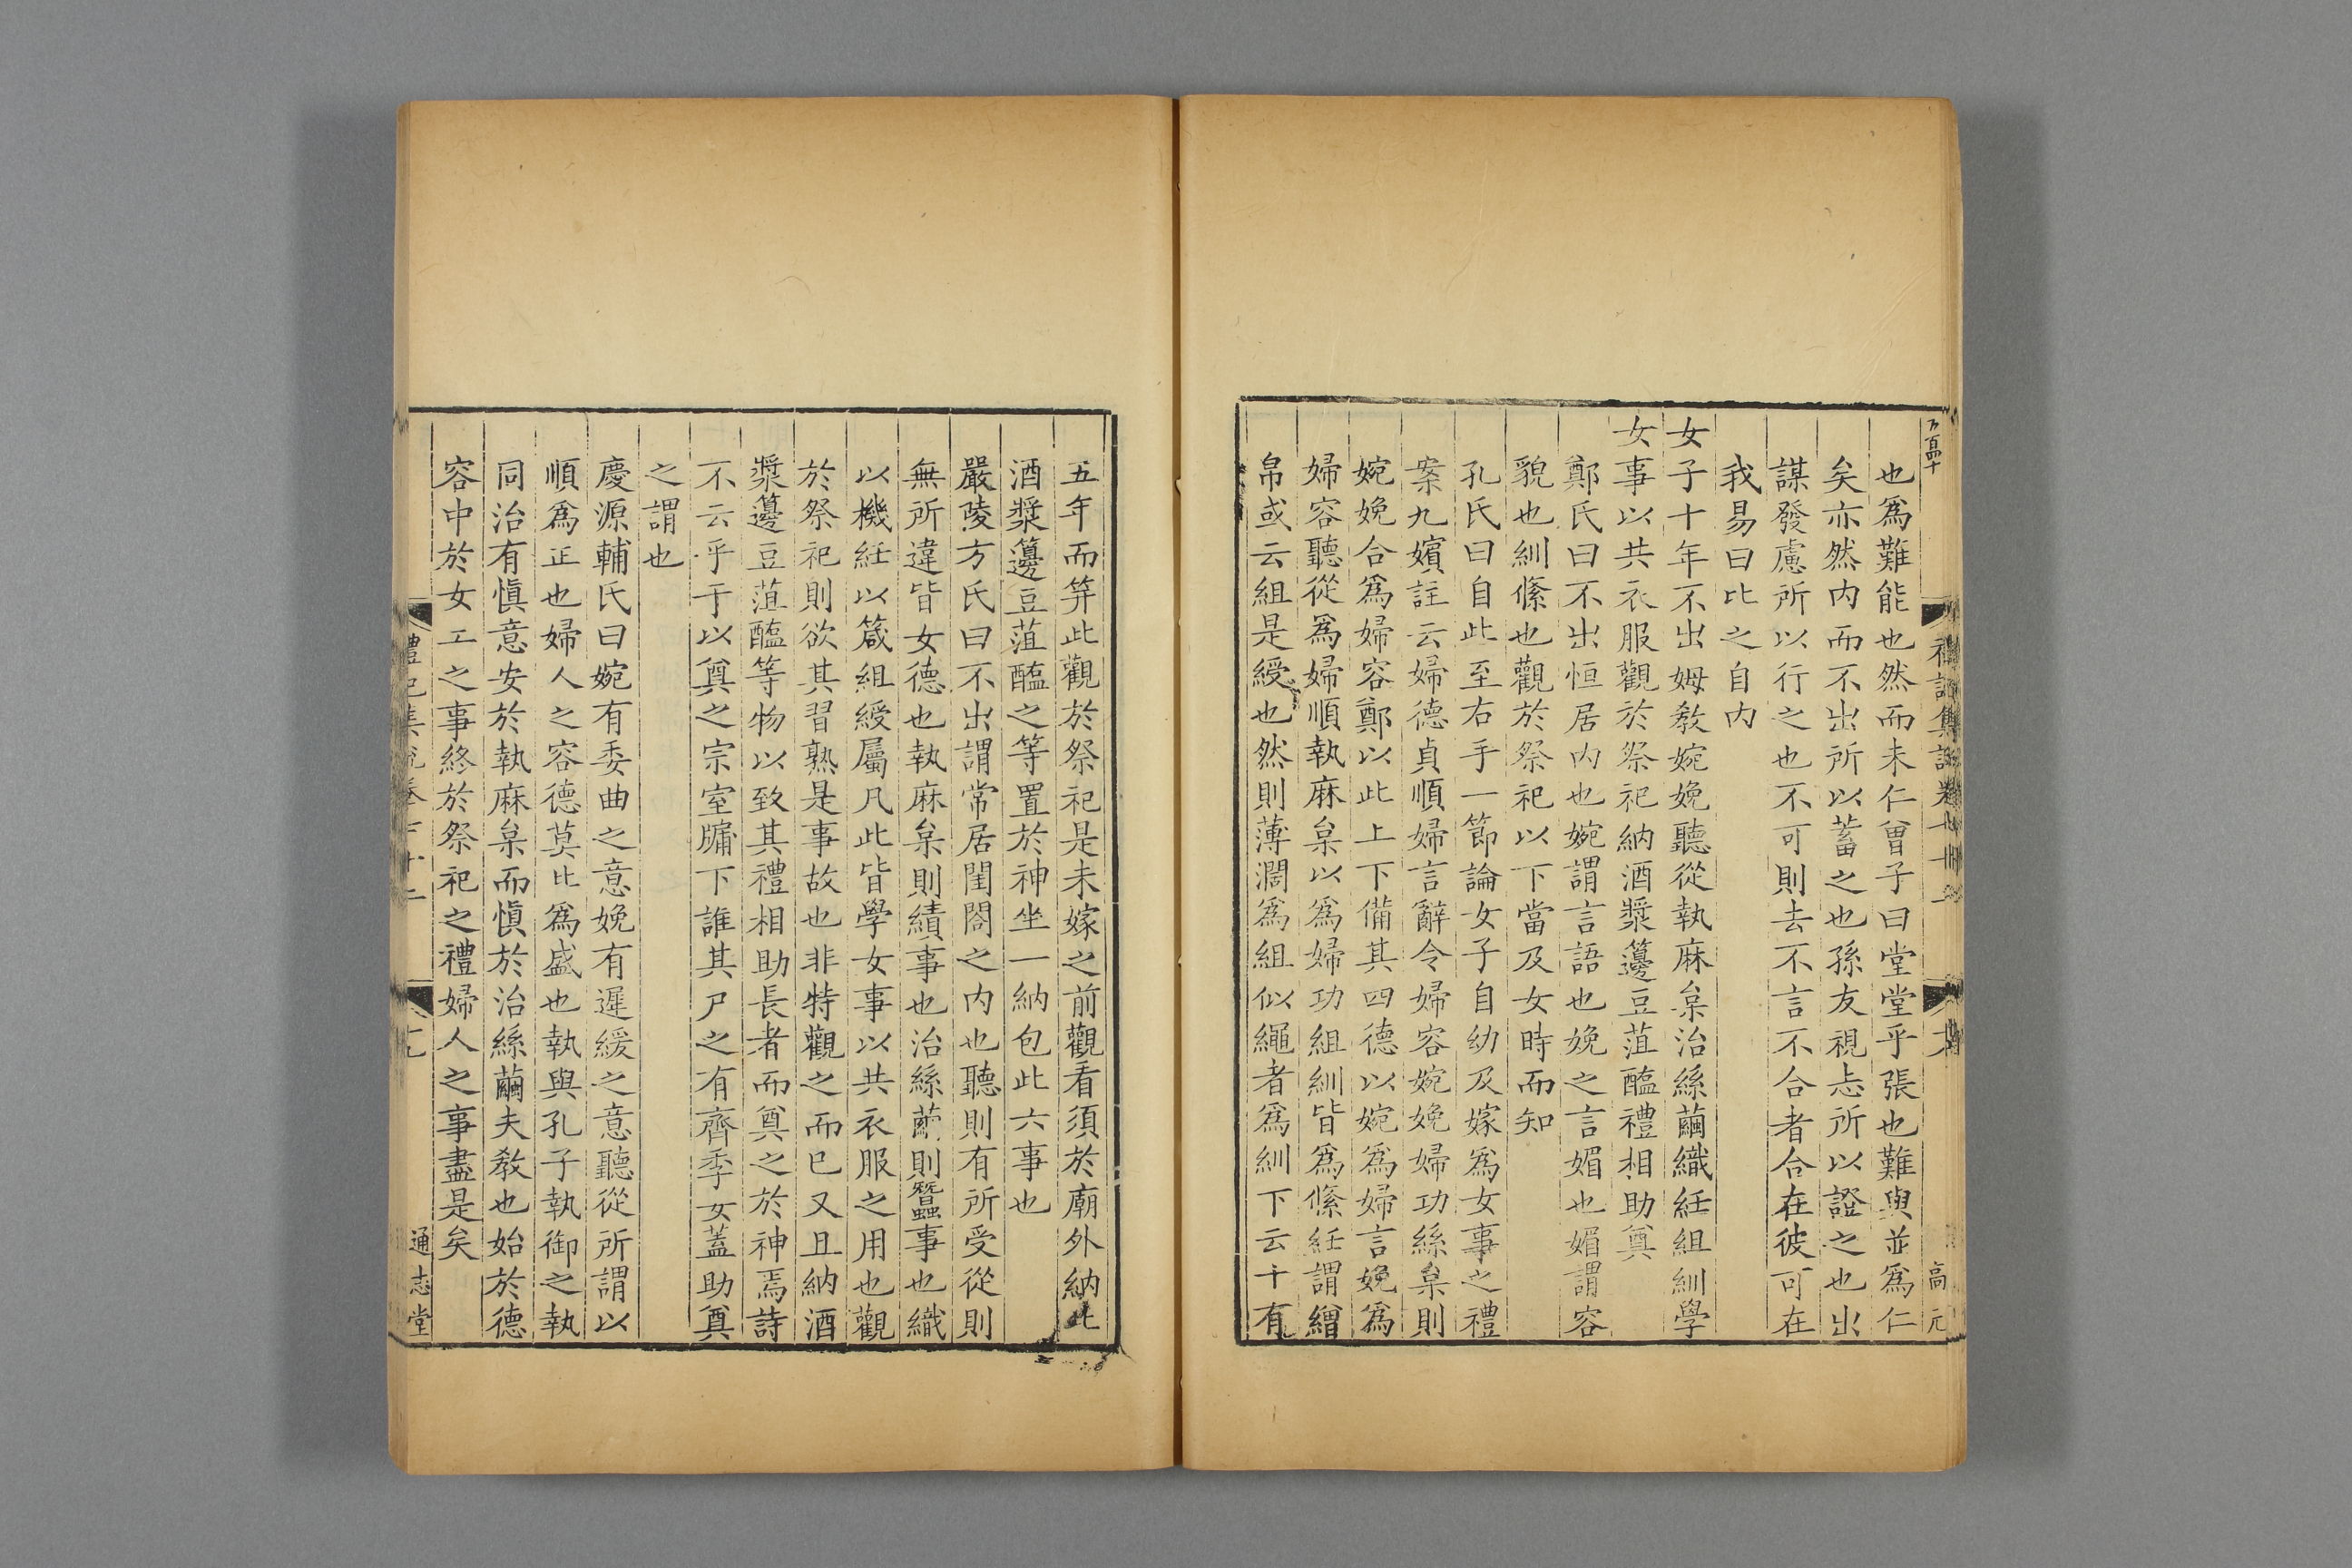 也爲難能也然而未仁曾子曰堂堂乎張也難與並爲仁
矣亦然内而不出所以蓄之也孫友視志所以證之也出
謀發慮所以行之也不可則去不言不合者合在彼可在
我易曰比之自内
女子十年不出姆敎婉娩聽從執麻枲治絲繭織紝組紃學
女事以共衣服觀於祭祀納酒漿籩豆菹醢禮相助奠
鄭氏曰不出恒居内也婉謂言語也娩之言媚也媚謂容
貌也紃絛也觀於祭祀以下當及女時而知
孔氏曰自此至右手一節論女子自幼及嫁爲女事之禮
案九嬪註云婦德貞順婦言辭令婦容婉娩婦功絲枲則
婉娩合爲婦容鄭以此上下備其四德以婉爲婦言娩爲
婦容聽從爲婦順執麻枲以爲婦功組紃皆爲絛紝謂繒
帛或云組是綬也然則薄濶爲組似繩者爲紃下云十有
高元
五年而笄此觀於祭祀是未嫁之前觀看須於廟外納此
酒漿籩豆菹醢之等置於神坐一納包此六事也
嚴陵方氏曰不出謂常居閨閤之内也聽則有所受從則
無所違皆女德也執麻枲則績事也治絲繭則蠶事也織
以機紝以箴組綬屬凡此皆學女事以共衣服之用也觀
於祭祀則欲其習熟是事故也非特觀之而已又且納酒
漿籩豆菹醢等物以致其禮相助長者而奠之於神焉詩
不云乎于以奠之宗室牖下誰其尸之有齊季女蓋助奠
之謂也
慶源輔氏曰婉有委曲之意娩有遲緩之意聽從所謂以
順爲正也婦人之容德莫比爲盛也執與孔子執御之執
同治有愼意安於執麻枲而愼於治絲繭夫敎也始於德
容中於女工之事終於祭祀之禮婦人之事盡是矣
通志堂